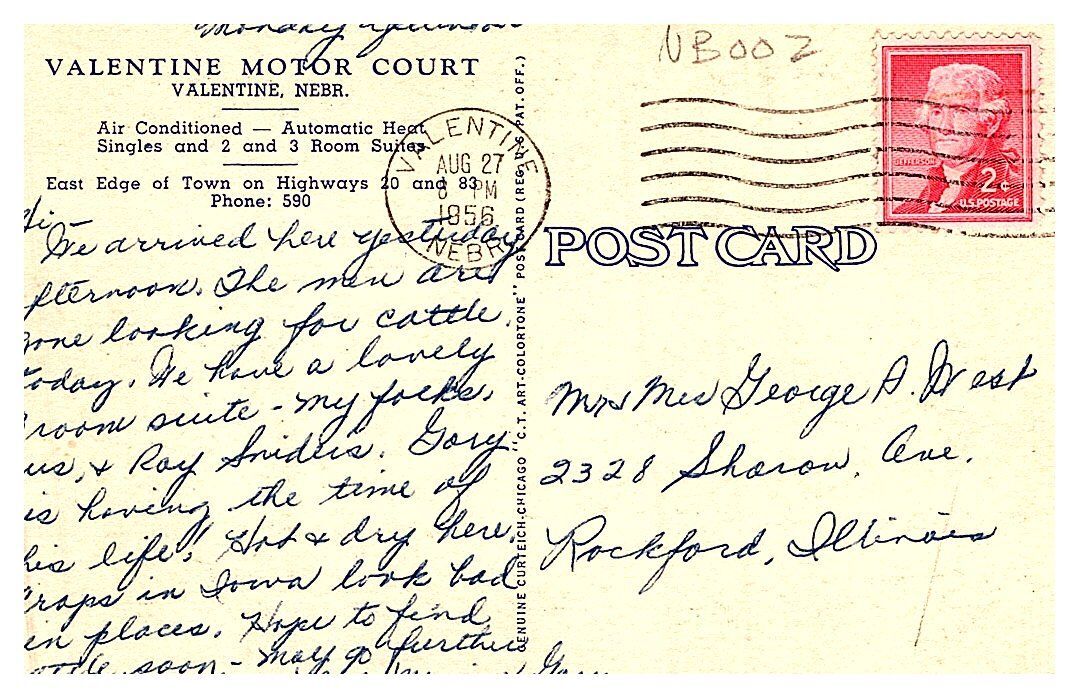 Monday afternoon
VALENTINE MOTOR COURT
VALENTINE, NEBR.
Air Conditioned — Automatic Heat
Singles and 2 and 3 Room Suites
East Edge of Town on Highways 20 and 83
Phone: 590
Hi-
We arrived here yesterday
fternoon. The men are
gone looking for cattle
today. We have a lovely
room suite - my folks,
us, & Ray Sniders. Gary
is having the time of
his life! Hot & dry here.
rops in Iowa look bad
in places. Hope to find
cattle soon - may go further
Gary
GENUINE CURTEICH-CHICAGO "C.T. ART-COLORTONE" POST CARD (REG. U.S. PAT. OFF.)
NB002
VALENTINE
AUG 27
8 PM
1956
NEBR
JEFFERSON
2¢
U.S. POSTAGE
POST CARD
Mr & Mrs George A. West
2328 Sharon Ave.
Rockford, Illinois